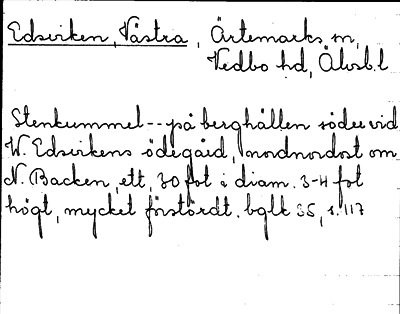 Edsviken, Västra, Ärtemarks sn,
Vedbo hd, Älvsb.l
Stenkummel -- på berghällen söder vid
W. Edsvikens ödegård, nordnordost om
N. Backen, ett, 30 fot i diam. 3-4 fot
högt, mycket förstördt. bglk 35, s. 117